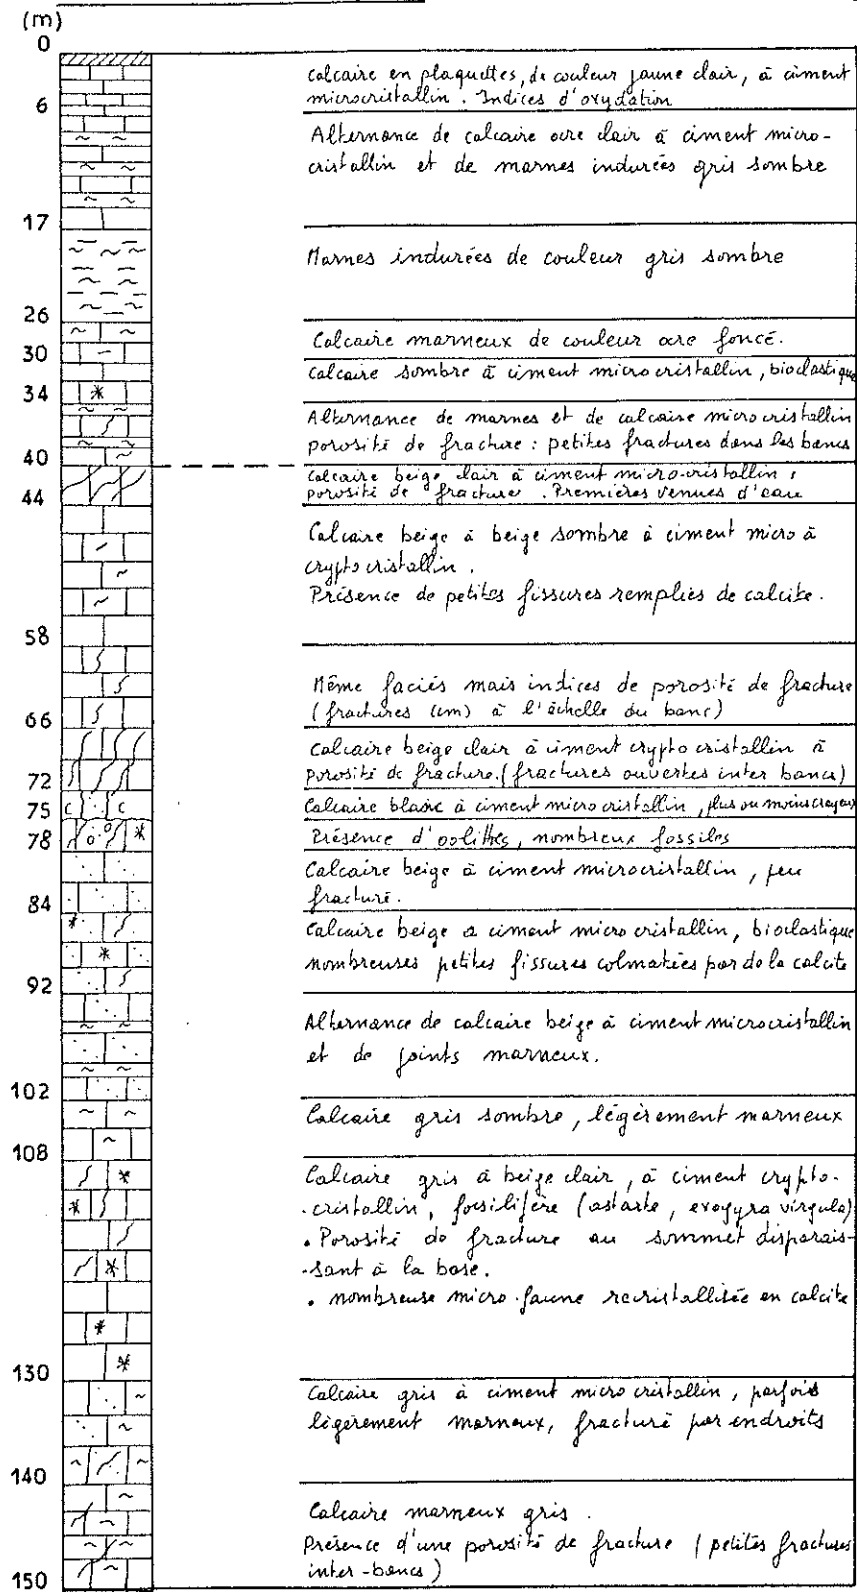 (m)
0
calcaire en plaquettes, de couleur jaune clair, à ciment
microcristallin. Indices d'oxydation
6
Alternance de calcaire ocre clair à ciment micro-
cristallin et de marnes indurées gris sombre
17
Marnes indurées de couleur gris sombre
26
Calcaire marneux de couleur ocre foncé.
30
calcaire sombre à ciment microcristallin, bioclastique
34
Alternance de marnes et de calcaire microcristallin
porosité de fracture : petites fractures dans les bancs
40
calcaire beige clair à ciment micro-cristallin ;
porosité de fracture. Premières venues d'eau
44
Calcaire beige à beige sombre à ciment micro à
cryptocristallin.
Présence de petites fissures remplies de calcite.
58
Même faciès mais indices de porosité de fracture
(fractures (cm) à l'échelle du banc)
66
calcaire beige clair à ciment cryptocristallin à
porosité de fracture. (fractures ouvertes inter bancs)
72
Calcaire blanc à ciment microcristallin, plus ou moins crayeux
75
C C
Présence d'oolithes, nombreux fossiles
78
Calcaire beige à ciment microcristallin, peu
fracturé.
84
calcaire beige à ciment microcristallin, bioclastique
nombreuses petites fissures colmatées par de la calcite
92
Alternance de calcaire beige à ciment microcristallin
et de joints marneux.
102
Calcaire gris sombre, légèrement marneux
108
Calcaire gris à beige clair, à ciment crypto-
-cristallin, fossilifère (astarte, exogyra virgula)
• Porosité de fracture au sommet disparais-
-sant à la base.
• nombreuse micro-faune recristallisée en calcite
130
Calcaire gris à ciment microcristallin, parfois
légèrement marneux, fracturé par endroits
140
Calcaire marneux gris.
Présence d'une porosité de fracture (petites fractures
inter-bancs)
150